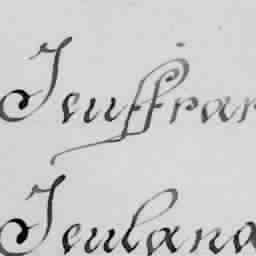 Jeuffrar
Jeulana